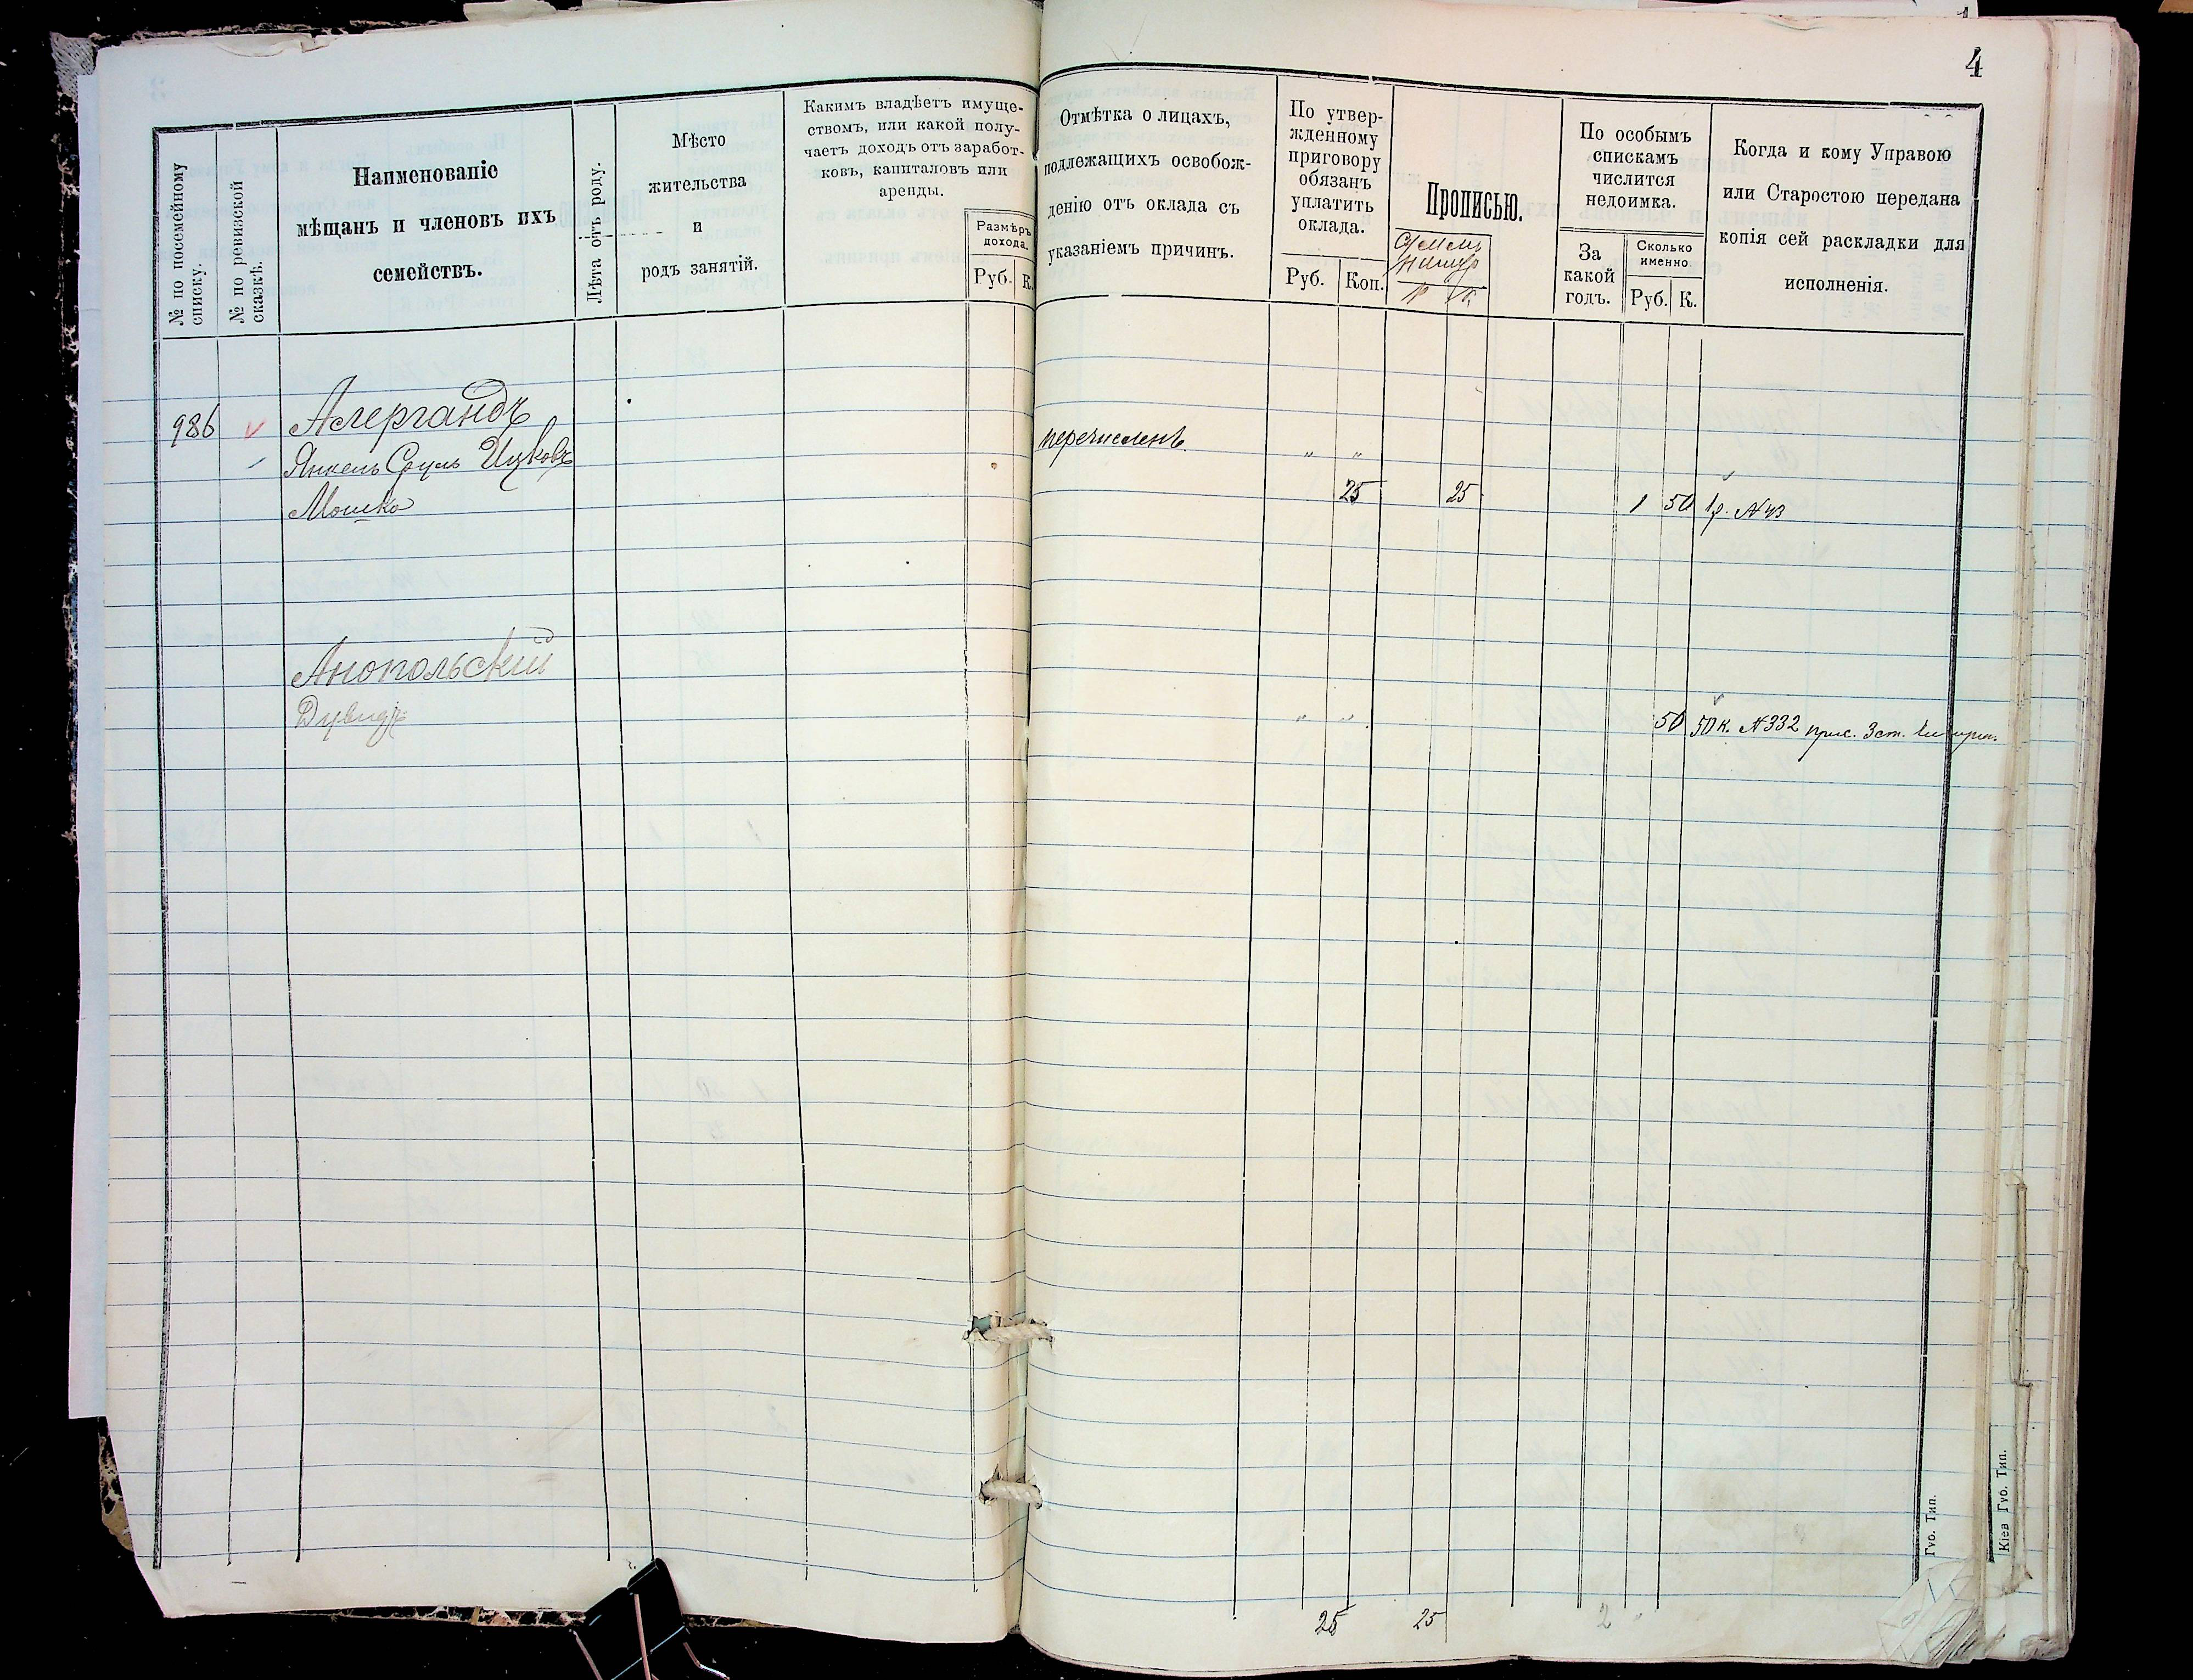 4
№ по посемейному списку.
№ по ревизской сказкѣ.
Наименованіе
мѣщанъ и членовъ ихъ
семействъ.
Лѣта отъ роду.
Мѣсто
жительства
и
родъ занятій.
Какимъ владѣетъ имуще-
ствомъ, или какой полу-
чаетъ доходъ отъ заработ-
ковъ, капиталовъ или
аренды.
Размѣръ
дохода.
Руб. К.
Отмѣтка о лицахъ,
подлежащихъ освобож-
денію отъ оклада съ
указаніемъ причинъ.
По утвер-
жденному
приговору
обязанъ
уплатить
оклада.
Руб. Коп.
Прописью.
Р К
По особымъ
спискамъ
числится
недоимка.
За
какой
годъ.
Сколько
именно
Руб. К.
Когда и кому Управою
или Старостою передана
копія сей раскладки для
исполненія.
986 Алергандъ
Янкель Сруль Ицковъ перечисленъ. " "
Мошко 25 25 1 50 1р. №43
Анопольскій
Дувидъ " " 50 50 к. №332
25 25 2 "
Губ. Тип.
Кіев Губ. Тип.